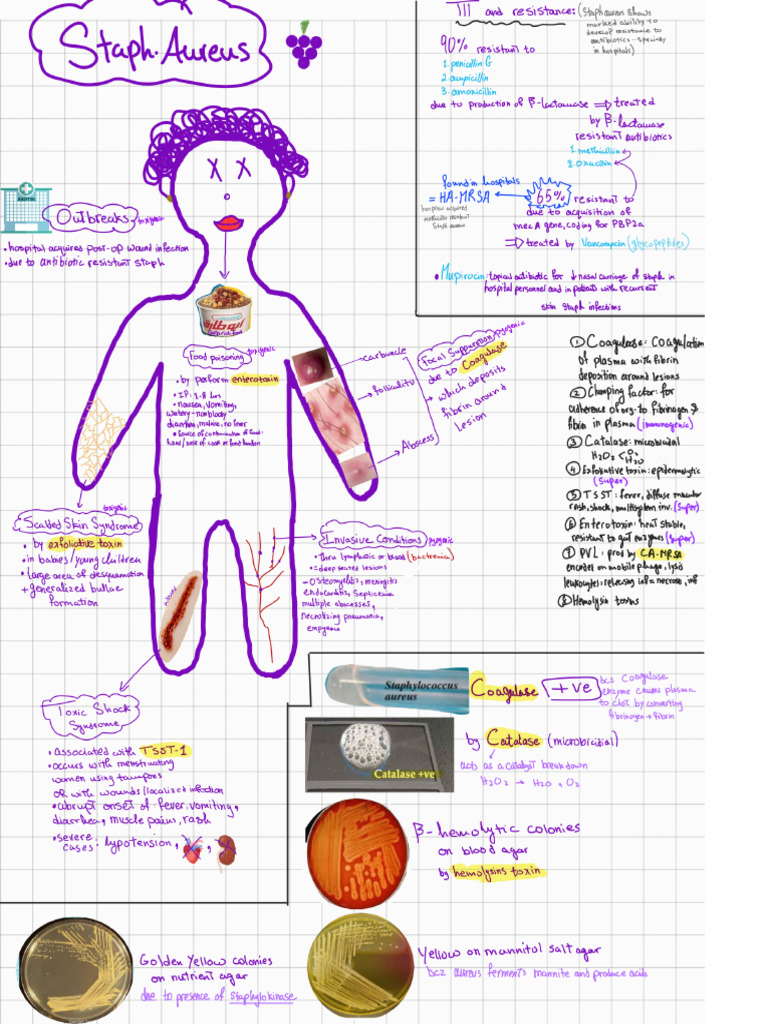 Staph. Aureus
TTT and resistance: (Staph aureus shows
marked ability to
develop resistance to
antibiotics - specialy
in hospitals)
90% resistant to
1. penicillin G
2. ampicillin
3. amoxicillin
due to production of β-lactamase ⇒ treated
by β-lactamase
resistant antibiotics
1. methicillin
2. oxacillin
found in hospitals
= HA-MRSA
hospital acquired
methicillin resistant
Staph aureus
65% resistant to
due to acquisition of
mecA gene, coding for PBP2a
⇒ treated by Vancomycin (glycopeptides)
• Mupirocin: topical antibiotic for ↓ nasal carriage of staph in
hospital personnel and in patients with recurrent
skin staph infections
HOSPITAL
Outbreaks toxigenic
• hospital acquired post-op wound infection
• due to antibiotic resistant staph
Food poisoning toxigenic
• by preform enterotoxin
• IP: 1-8 hrs
• nausea, vomiting,
watery-nonbloody
diarrhea, malaise, no fever
• source of contamination of food:
hand/nose of cook or food handlers
carbuncle
folliculitis
Abscess
Focal Suppuration pyogenic
due to Coagulase
which deposits
fibrin around
lesion
① Coagulase: coagulation
of plasma with fibrin
deposition around lesions
② Clumping factor: for
adherence of orgs to fibrinogen &
fibrin in plasma (immunogenic)
③ Catalase: microbicidal
H2O2 < O2 H2O
④ Exfoliative toxin: epidermolytic
(super)
⑤ TSST: fever, diffuse macular
rash, shock, multisystem inv. (super)
⑥ Enterotoxin: heat stable,
resistant to gut enzymes (super)
⑦ PVL: prod by CA-MRSA
encoded on mobile phage, lysis
leukocytes: releasing
⑧ Hemolysin toxins
Scalded Skin Syndrome toxigenic
• by exfoliative toxin
• in babies/young children
• large area of desquamation
+ generalized bullae
formation
wound
Invasive Conditions pyogenic
• thru lymphatic or blood (bacteremia)
• = deep seated lesions
- osteomyelitis, meningitis
endocarditis, septicemia
multiple abscesses,
necrotizing pneumonia,
empyema
Toxic Shock
Syndrome
• associated with TSST-1
• occurs with menstruating
women using tampons
OR with wounds/localized infection
• abrupt onset of fever, vomiting,
diarrhea, muscle pains, rash
• severe
cases: hypotension,
Staphylococcus
aureus
Coagulase +ve
bcz Coagulase
enzyme causes plasma
to clot by converting
fibrinogen → fibrin
Catalase +ve
by Catalase (microbicidal)
acts as a catalyst breakdown
H2O2 → H2O + O2
β-hemolytic colonies
on blood agar
by hemolysins toxin
Golden Yellow colonies
on nutrient agar
due to presence of Staphylokinase
Yellow on mannitol salt agar
bcz aureus ferments mannite and produce acids